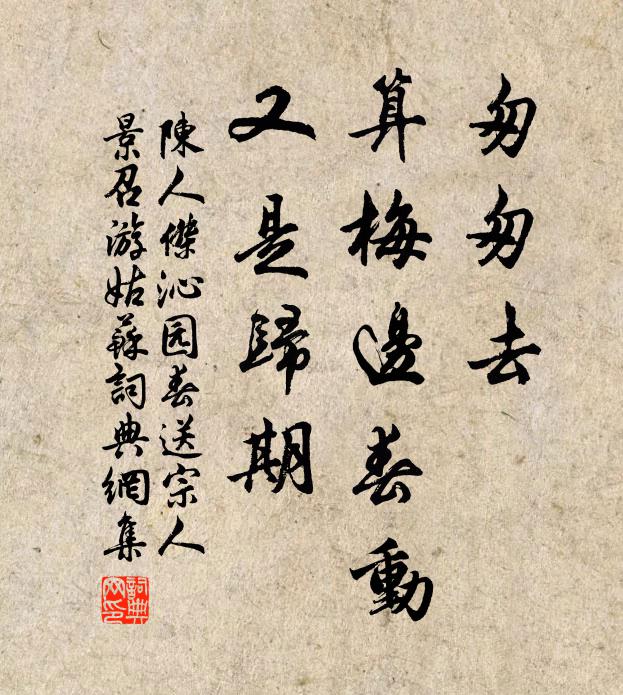 匆匆去
算梅邊春動
又是歸期
陳人傑沁园春送宗人
景召游姑蘇詞典網集
詞典網印